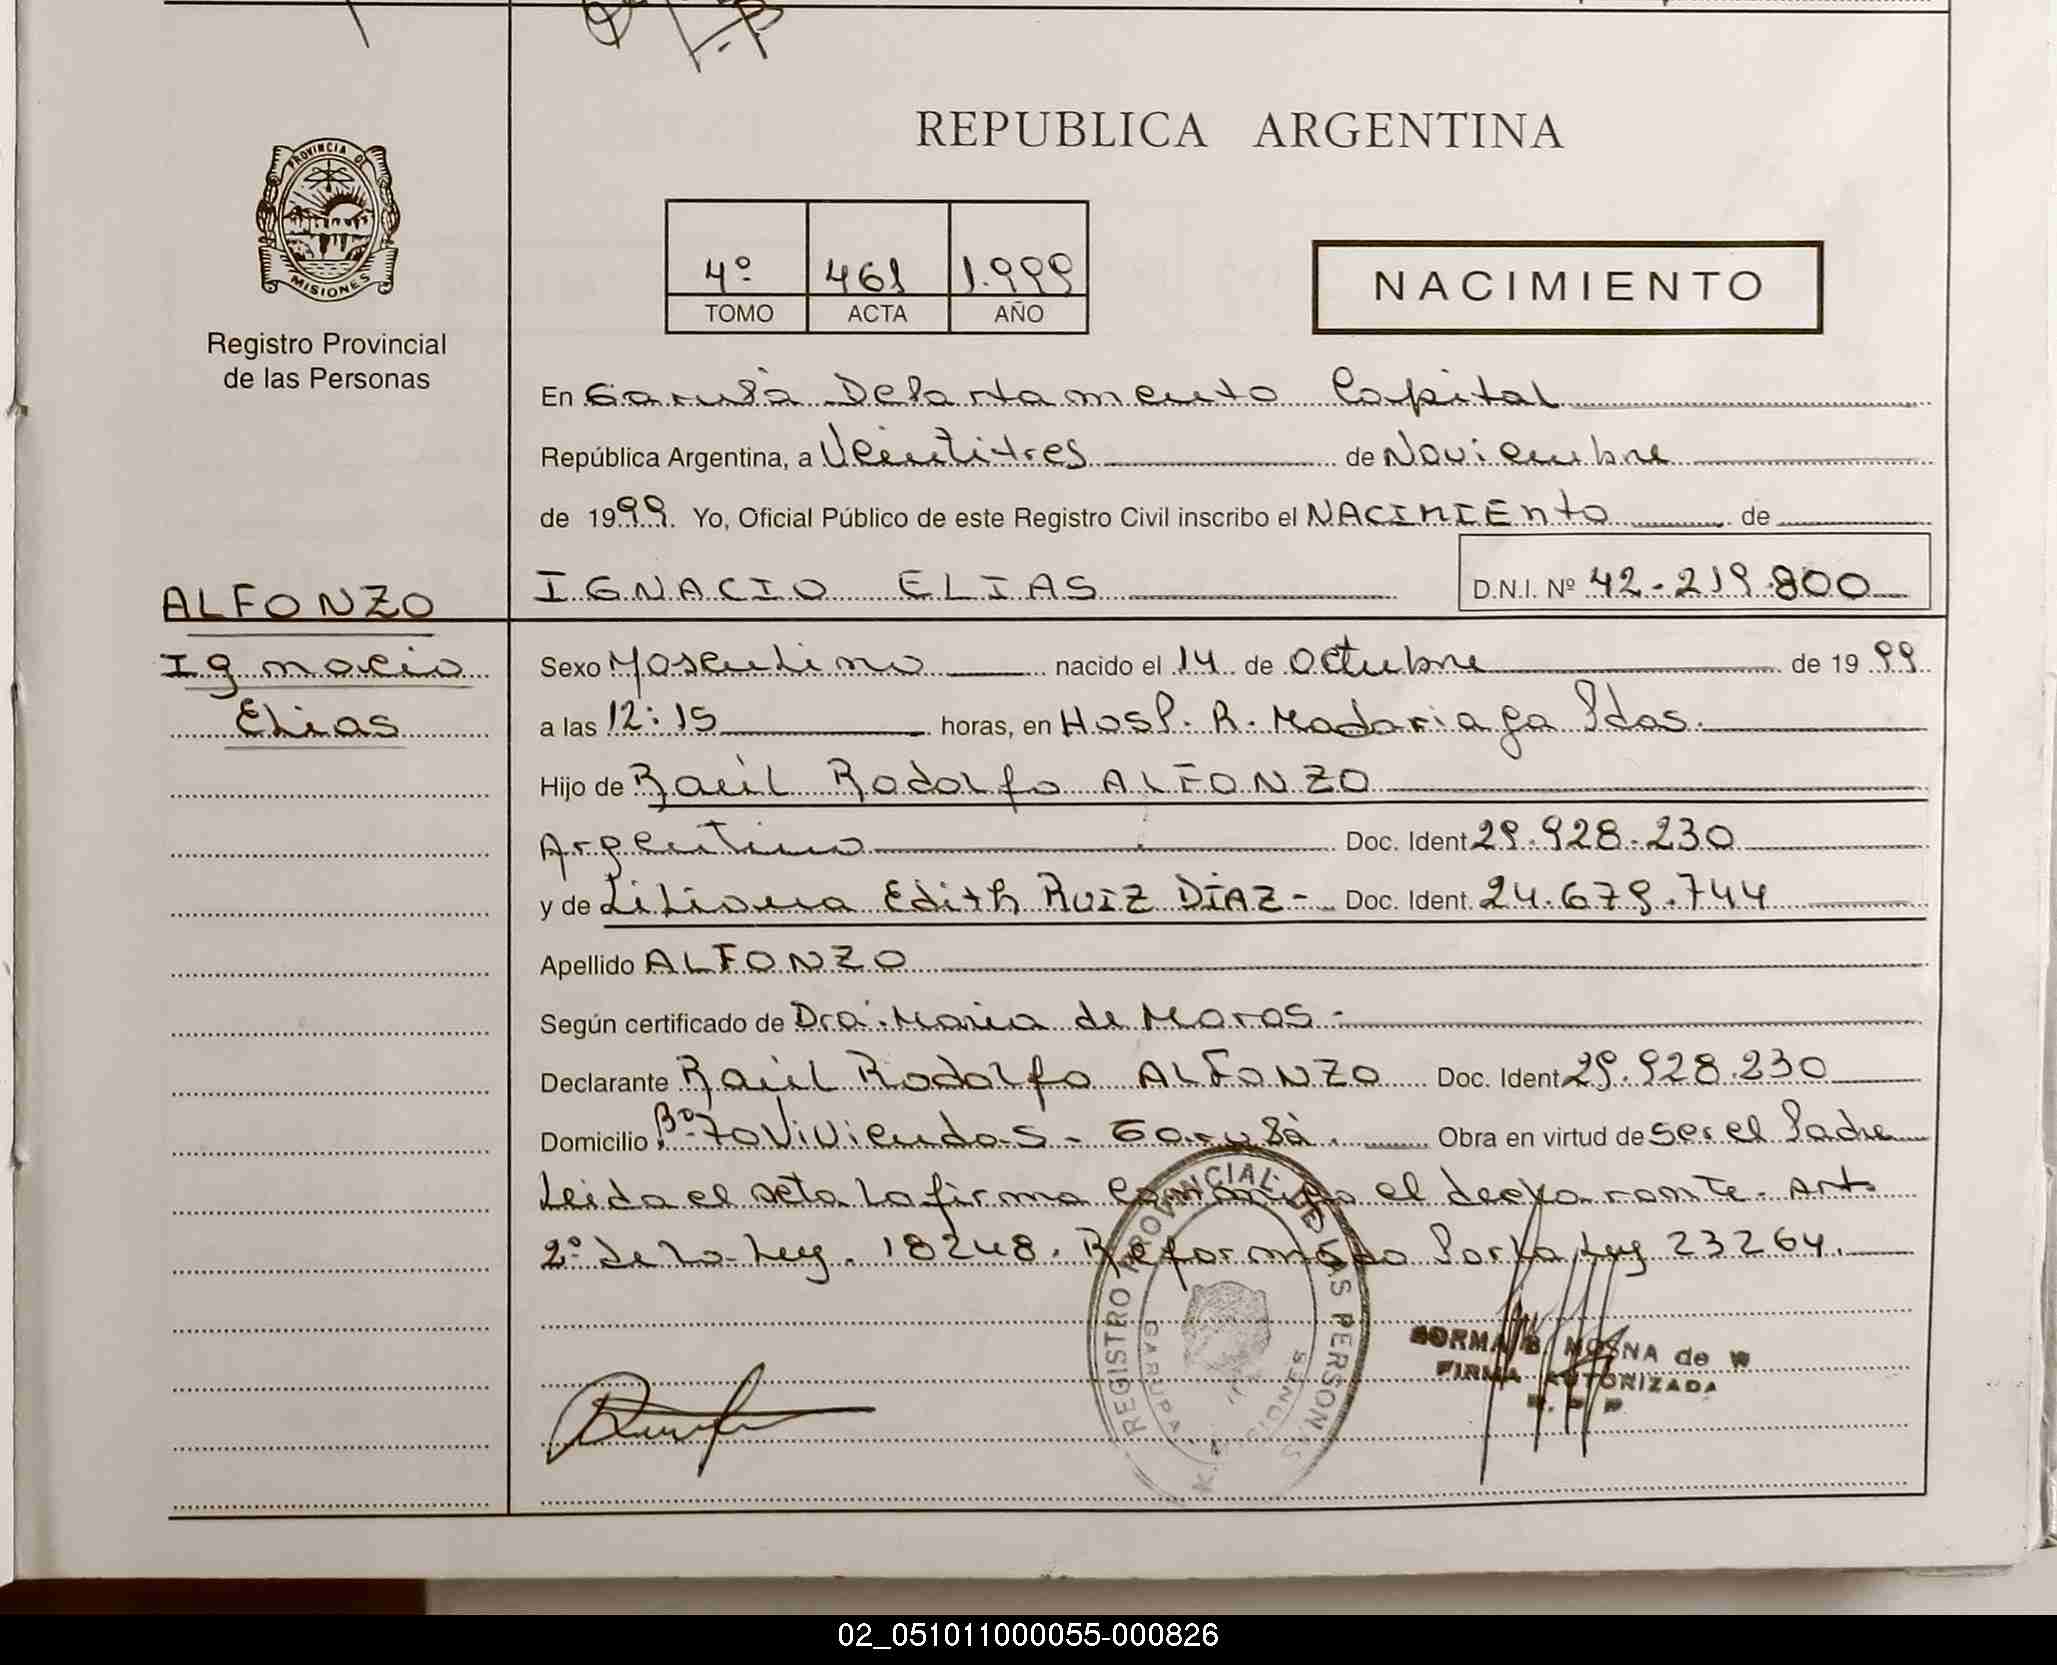 REPUBLICA ARGENTINA
PROVINCIA DE
MISIONES
Registro Provincial
de las Personas
4º 461 1.999
TOMO ACTA AÑO
NACIMIENTO
En Garupá Departamento Capital
República Argentina, a Veintitres de Noviembre
de 1999. Yo, Oficial Público de este Registro Civil inscribo el NACIMIENTO de
IGNACIO ELIAS D.N.I. Nº 42-219.800
ALFONZO
Ignacio
Elias
Sexo Masculino nacido el 14 de Octubre de 1999
a las 12:15 horas, en Hosp. R. Madariaga Pdas.
Hijo de Raúl Rodolfo ALFONZO
Argentino Doc. Ident 29.928.230
y de Liliana Edith RUIZ DIAZ- Doc. Ident. 24.679.744
Apellido ALFONZO
Según certificado de Dra. Maria de Moros-
Declarante Raúl Rodolfo ALFONZO Doc. Ident 29.928.230
Domicilio Bº 70 Viviendas - Garupá. Obra en virtud de ser el Padre
Leida el acta la firma conmigo el declarante. Art.
2º de la Ley. 18248. Reformado Por la Ley 23264.
REGISTRO PROVINCIAL DE LAS PERSONAS
GARUPA
MISIONES
NORMA B. MOSNA de W
FIRMA AUTORIZADA
R. P. P
02_051011000055-000826